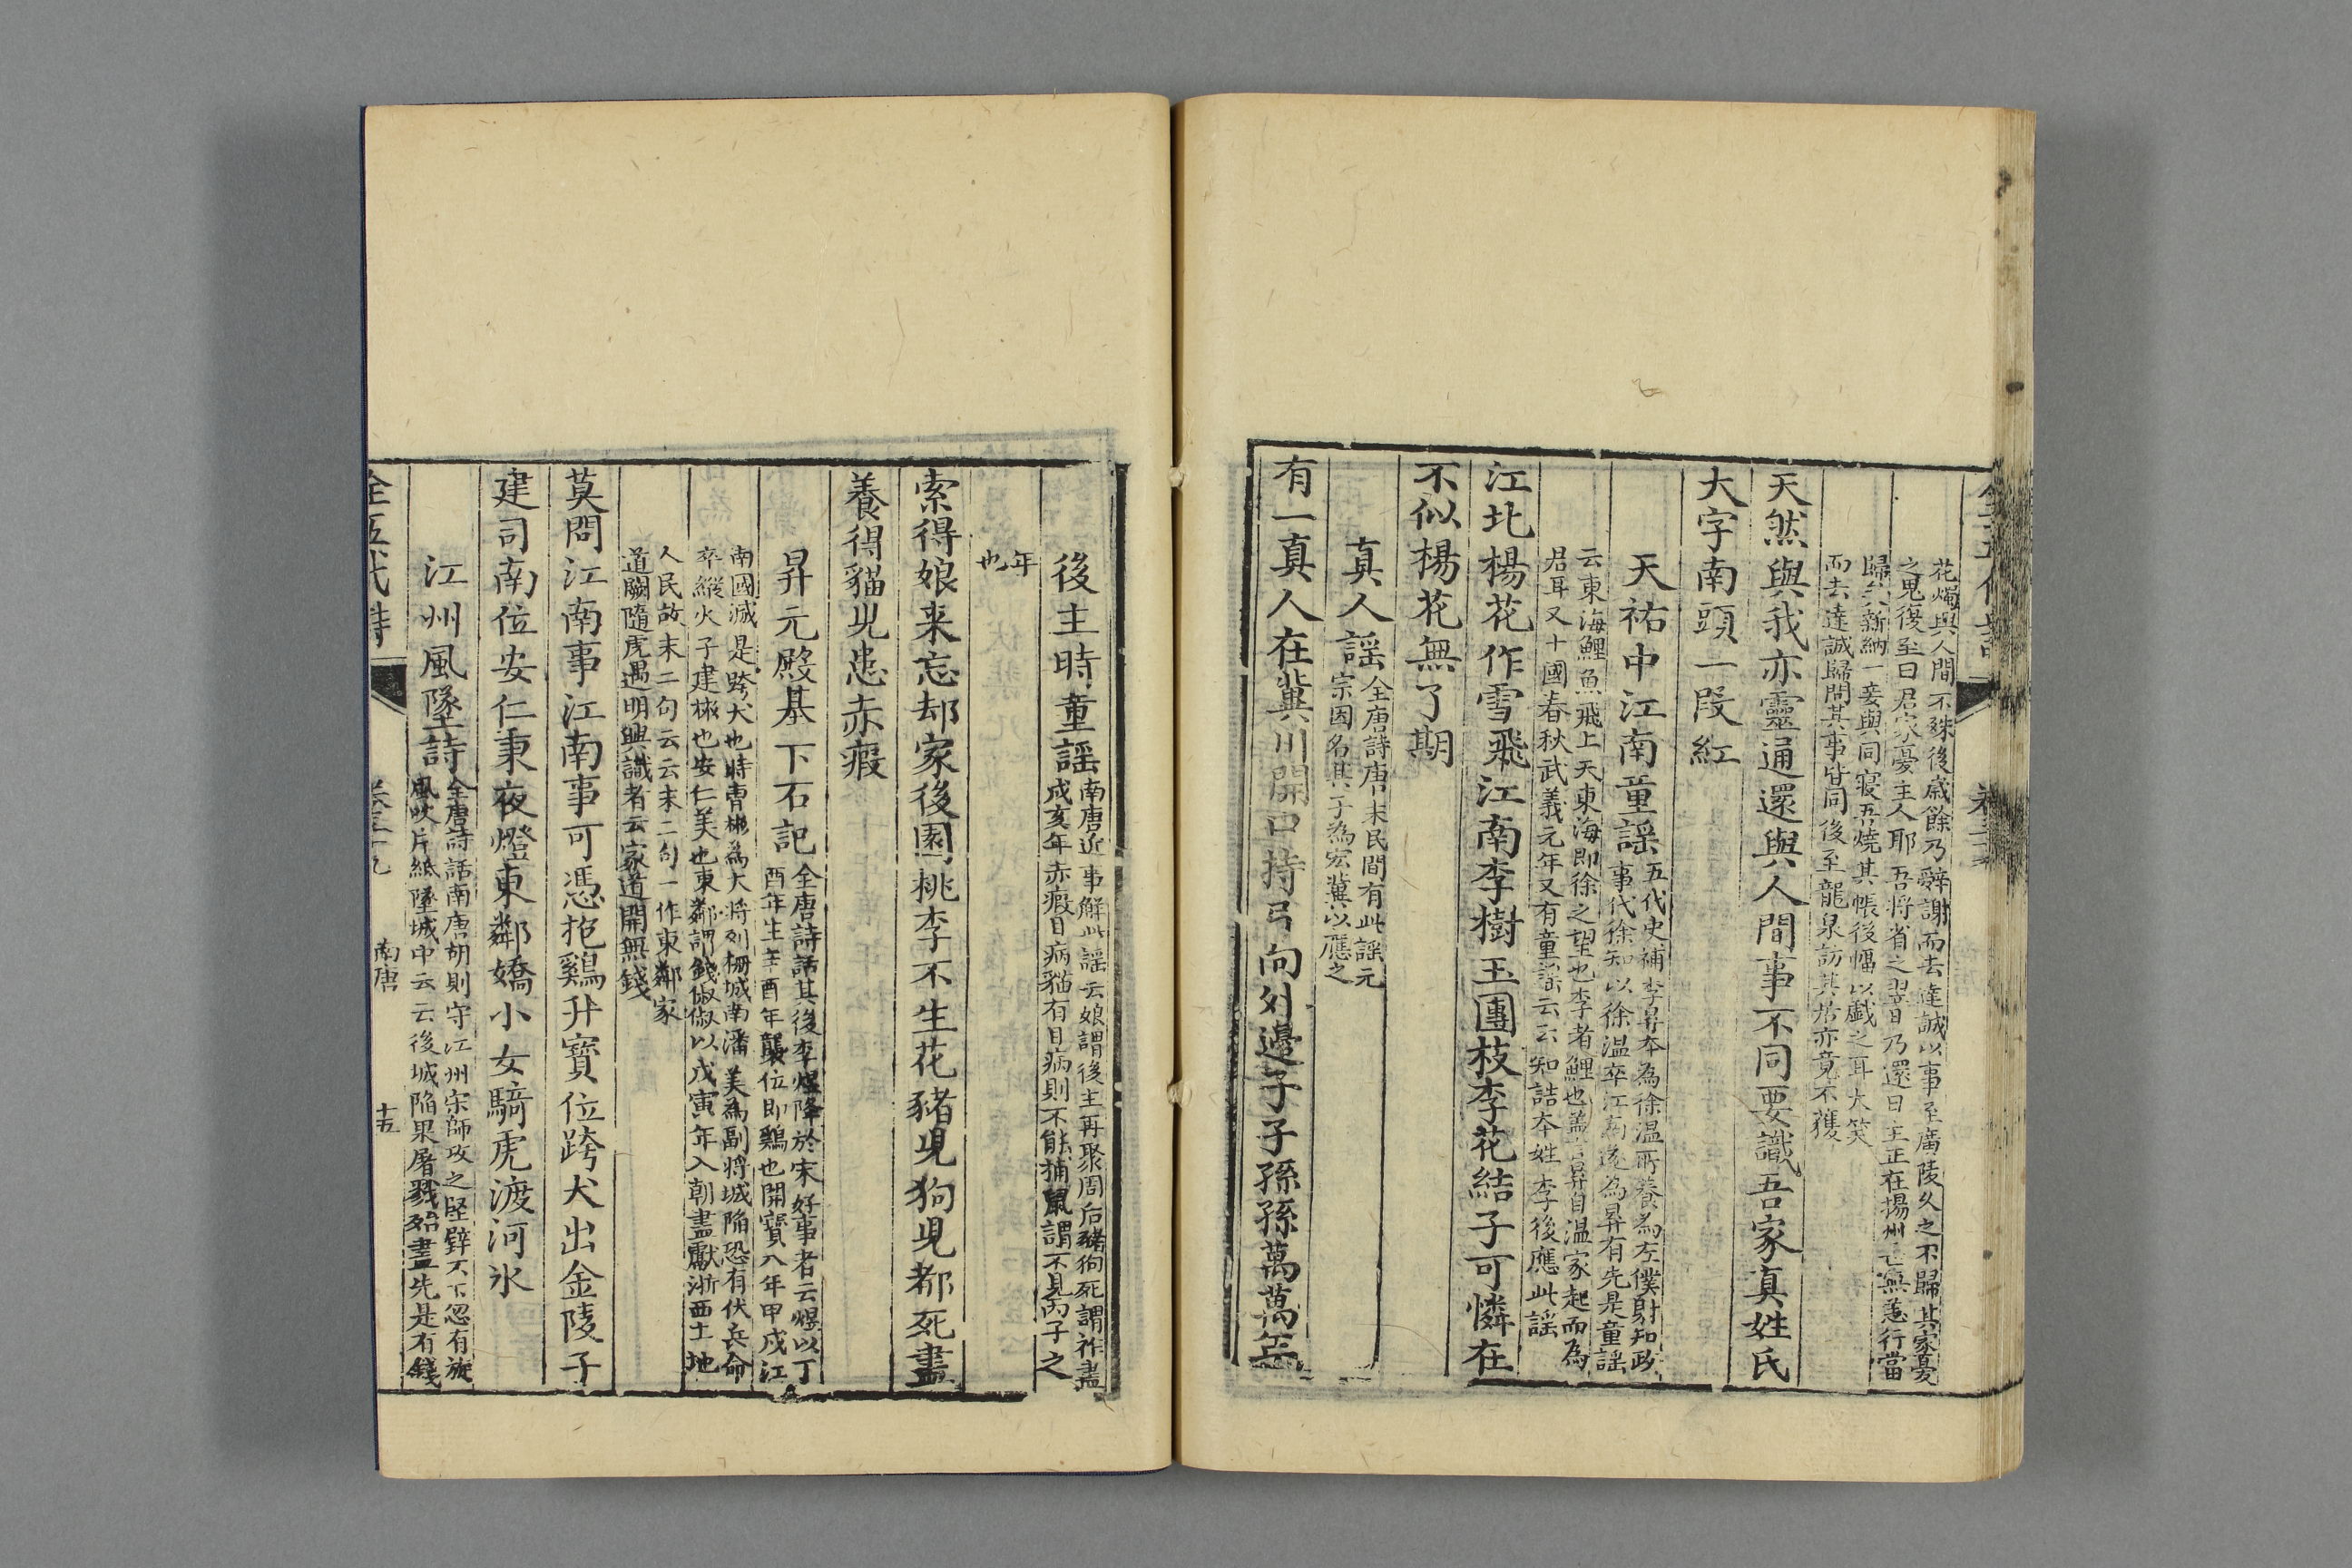 花燭與人間不殊後歲餘乃辭謝而去達誠以事至廣陵久之不歸其家憂
之鬼復至曰君家憂主人耶吾將省之翌日乃還曰主正在揚州亡無恙行當
歸矣新納一妾與同寝吾燒其帳後幅以戲之耳大笑
而去達誠歸問其事皆同後至龍泉訪其居亦竟不獲
天然與我亦靈通還與人間事不同要識吾家真姓氏
大字南頭一段紅
天祐中江南童謡
五代史補李昪本為徐温所養為左僕射知政
事代徐知以徐温卒江南遂為昪有先是童謡
云東海鯉魚飛上天東海即徐之望也李者鯉也盖言昪自温家起而為
君耳又十國春秋武義元年又有童謡云云知誥本姓李後應此謡
江北楊花作雪飛江南李樹玉團枝李花結子可憐在
不似楊花無了期
真人謡
全唐詩唐末民間有此謡元
宗因名其子為宏冀以應之
有一真人在冀川開口持弓向外邊子子孫孫萬萬年
後主時童謡
南唐近事解此謡云娘謂後主再聚周后豬狗死謂祚盡
戌亥年赤瘕目病貓有目病則不能捕鼠謂不見丙子之
年
也
索得娘来忘却家後園桃李不生花豬兒狗兒都死盡
養得貓兒患赤瘕
昇元殿基下石記
全唐詩話其後李煜降於宋好事者云煜以丁
酉年生辛酉年襲位即鷄也開寶八年甲戌江
南國滅是跨犬也時曹彬為大將列栅城南潘美為副將城陷恐有伏兵命
卒縱火子建彬也安仁美也東鄰謂錢俶俶以戊寅年入朝盡獻浙西土地
人民故末二句云云末二句一作東鄰家
道闕隨虎遇明興識者云家道闕無錢
莫問江南事江南事可憑抱鷄升寶位跨犬出金陵子
建司南位安仁秉夜燈東鄰嬌小女騎虎渡河氷
江州風墜詩
全唐詩話南唐胡則守江州宋師攻之堅壁不下忽有旋
風吹片紙墜城中云云後城陷果屠戮殆盡先是有錢
全五代詩
卷三十九
南唐
十五